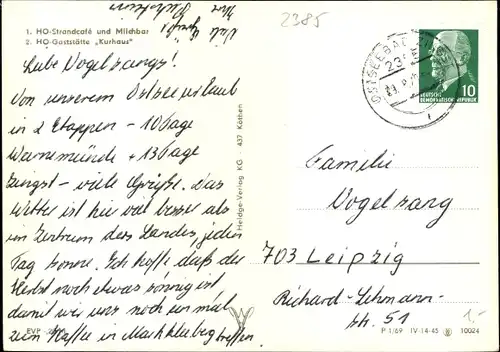 1. HO-Strandcafé und Milchbar
2. HO-Gaststätte „Kurhaus"
2385
Liebe Vogelsangs!
Von unserem Ostseeurlaub
in 2 Etappen - 10 Tage
Warnemünde + 13 Tage
Zingst - viele Grüße. Das
Wetter ist hier viel besser als
im Zentrum des Landes, jeden
Tag Sonne. Ich hoffe, daß der
Herbst noch etwas sonnig ist,
damit wir uns noch einmal
zum Kaffee in Markkleeberg treffen.
EVP
Heldge-Verlag KG · 437 Köthen
OSTSEEBAD
10
DEUTSCHE
DEMOKRATISCHE REPUBLIK
Familie
Vogelsang
703 Leipzig
Richard-Lehmann-
Str. 51
1,-
P 1/69 IV-14-45 10024